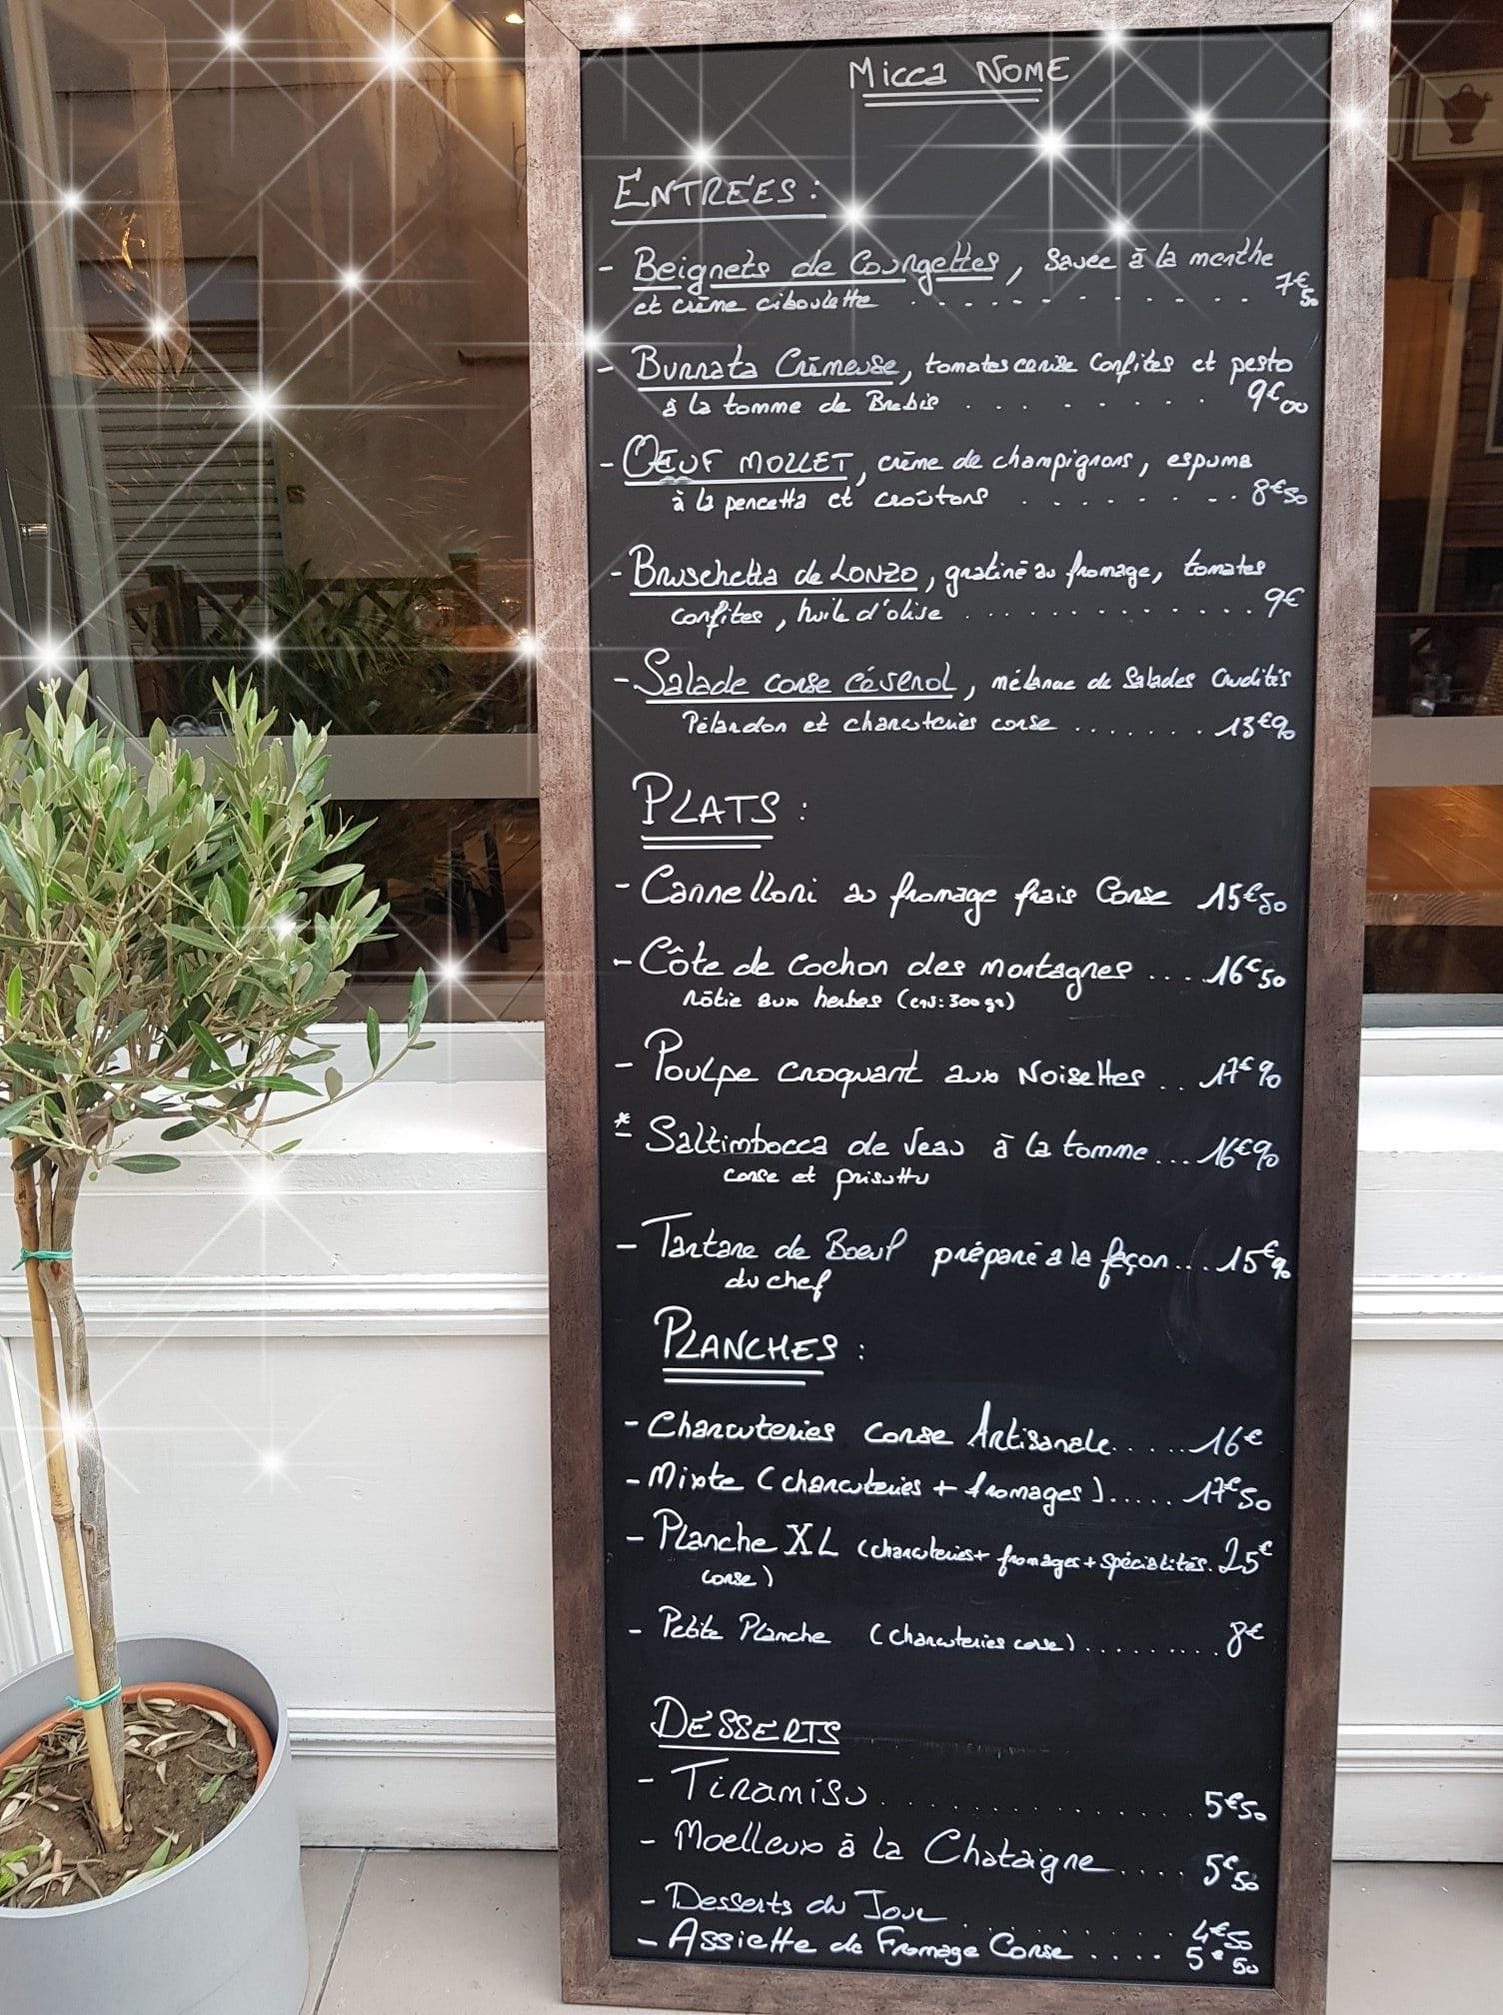 Micca NOME
ENTREES :
- Beignets de Courgettes, Sauce à la menthe
et crème ciboulette . . . . . . . . . . . 7€50
- Burrata Crèmeuse, tomates cerise Confites et pesto
à la tomme de Brebis . . . . . . . . 9€00
- OEUF MOLLET, crème de champignons, espuma
à la pencetta et croûtons . . . . . . . 8€50
- Bruschetta de LONZO, gratiné au fromage, tomates
confites, huile d'olive . . . . . . . . . . . . 9€
- Salade corse cévenol, mélange de Salades Crudités
Pélardon et charcuteries corse . . . . . . . 13€90
PLATS :
- Cannelloni au fromage frais Corse 15€50
- Côte de Cochon des montagnes . . . . 16€50
Rôtie aux herbes (env: 300 gr)
- Poulpe Croquant aux Noisettes . . 17€90
* - Saltimbocca de Veau à la tomme . . . . 16€90
corse et prisuttu
- Tartare de Boeuf préparé à la façon . . . . 15€90
du chef
PLANCHES :
- Charcuteries Corse Artisanale . . . . . . 16€
- Mixte (charcuteries + fromages) . . . . . 17€50
- Planche XL (charcuteries + fromages + spécialités . 25€
corse)
- Petite Planche (Charcuteries corse) . . . . . . . . . 8€
DESSERTS
- Tiramisu . . . . . . . . . . . . . . 5€50
- Moelleux à la Chataigne . . . . 5€50
- Desserts du Jour . . . . . . . . . 4€50
- Assiette de Fromage Corse . . . . 5€50